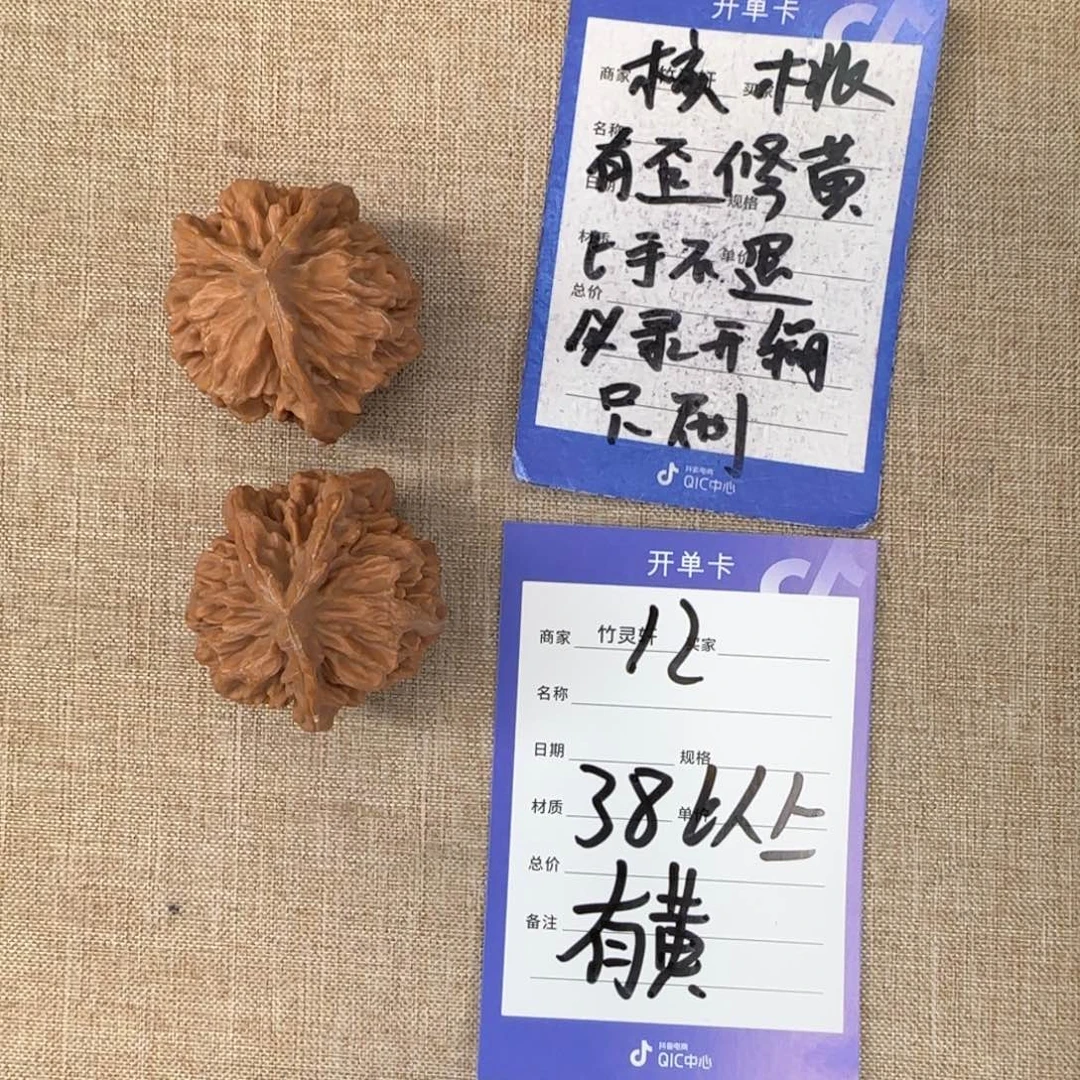 开单卡
核桃
商家 竹灵轩 买家
名称
有歪修黄
日期 规格
上手不退
材质 单价
总价
必录开箱
只刷
抖音电商
QIC中心
开单卡
12
商家 竹灵轩 买家
名称
日期 规格
38以上
材质 单价
总价
有黄
备注
抖音电商
QIC中心